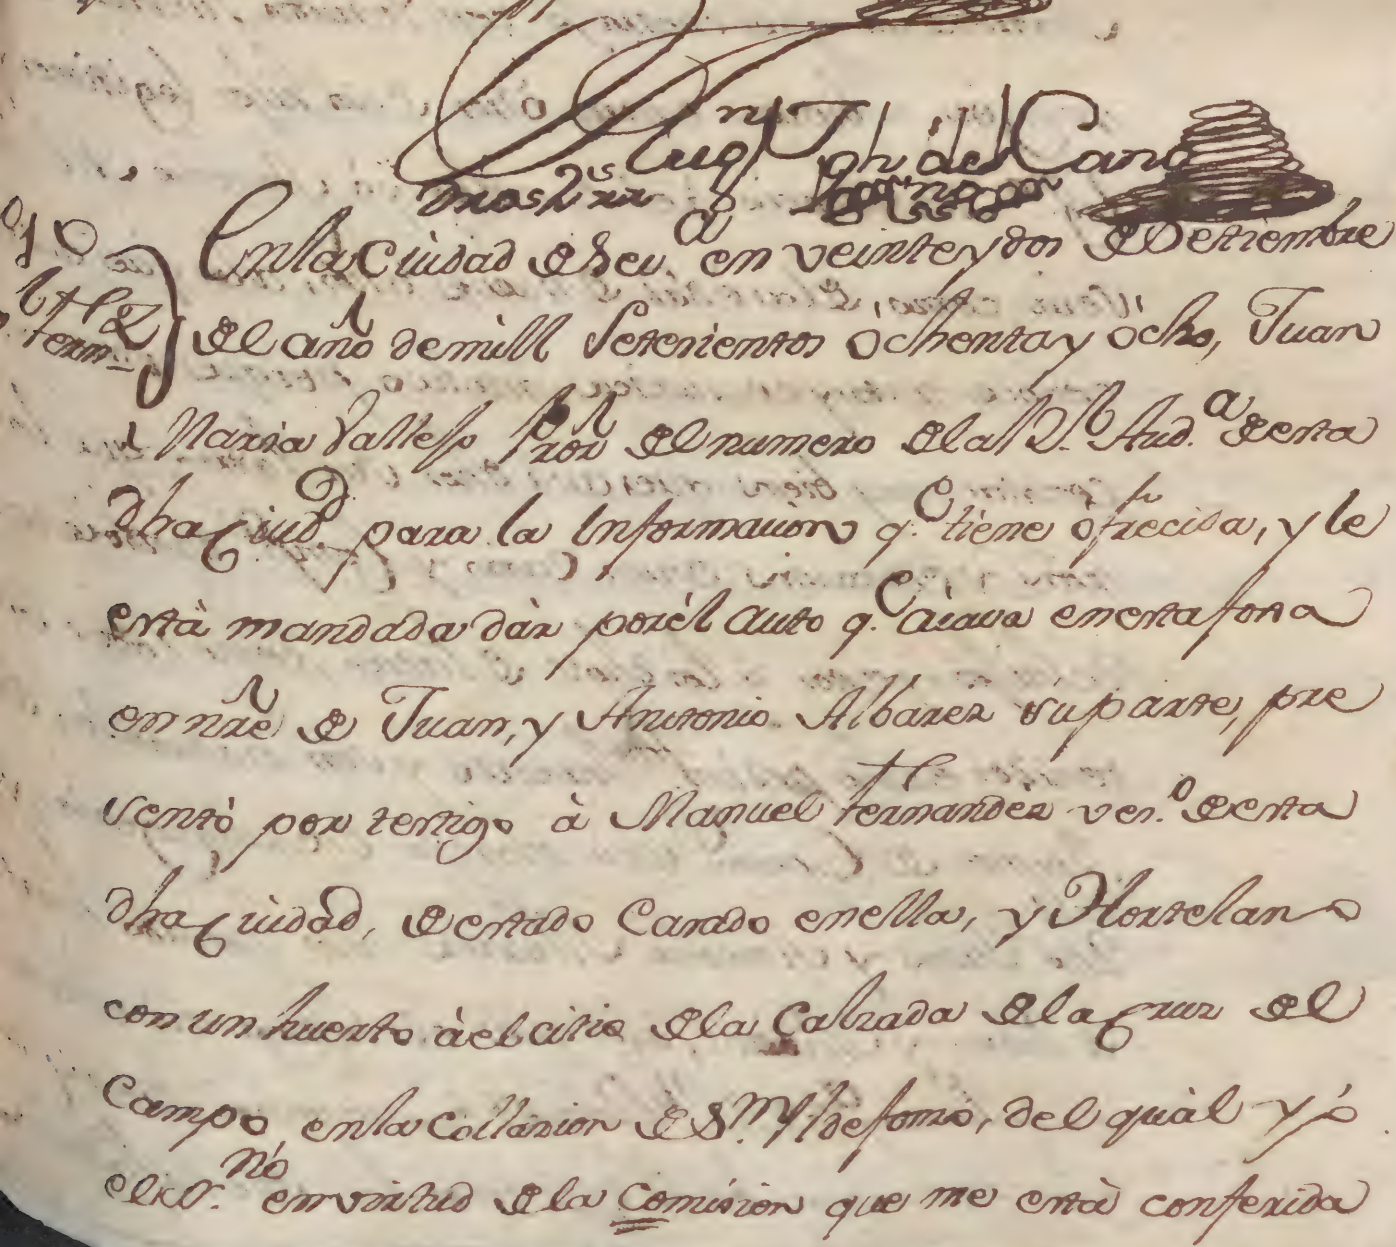 Joph del Cano
En la Ciudad de Sev.a en veinte y dos de Dectiembre
del año de mill Setecientos ôchenta y ôcho, Juan
Maria Vallejo Pror del numero de la R.l Aud.a de esta
dha Ciud.d para la Informacion q.e tiene ôfrecida, y le
està mandada dàr por èl auto q.e àcava en esta foxa
en nrê de Juan, y Antonio Albarez su parte, pre
sentò por testigo â Manuel Fernandèz vec.o de esta
dha Ciudad, de estado Casado en ella, y Hortelano
con un huerto àel citio de la Calzada de la Cruz del
Campo, en la Collazion de S.n Yldefonso, del quàl yò
el ess.no en virtud de la Comision que me està conferida